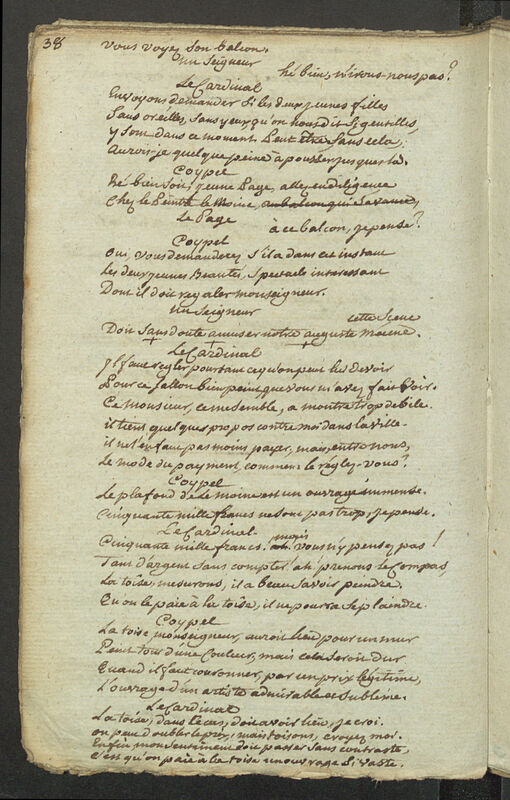 38
Vous voyez son balcon.
un Seigneur
hé bien, n'irons-nous pas?
Le Cardinal
Envoyons demander si les deux jeunes filles
Sans oreilles, sans yeux, qu'on nous dit si gentilles,
y sont dans ce moment. Peut être sans cela,
Aurois-je quelque peine à pousser jusques là.
Coypel
Hé bien soit, jeune Page, allez en diligence
Chez le Peintre le Moine, au balcon qui s'avance,
Le Page
à ce balcon, je pense?
Coypel
Oui, vous demanderez s'il a dans cet instant
Les deux jeunes Beautés, Spectacle interessant
Dont il doit regaler monseigneur.
un Seigneur
cette Scene
Doit sans doute amuser notre auguste mécène.
Le Cardinal
Il faut regler pourtant ce qu'on peut lui devoir
Pour ce sallon bien peint que vous m'avez fait voir.
Ce monsieur, ce me semble, a montré trop de bile.
il tient quelques propos contre moi dans la ville.
il n'en faut pas moins payer, mais, entre nous,
Le mode du payment, comment le réglez-vous?
Coypel
Le plafond de Le moine est un ouvrage immense.
Cinquante mille francs ne sont pas trop, je pense.
Le Cardinal
mais
Cinquante mille francs. ah. vous n'y pensez pas!
Tant d'argent sans compter! ah! prenons le Compas,
La toise, mesurons, il a beau savoir peindre,
Qu'on le paie à la toise, il ne pourra se plaindre.
Coypel
La toise, monseigneur, auroit lieu pour un mur
Peint tout d'une Couleur, mais cela seroit dur
Quand il faut couronner, par un prix légitime,
L'ouvrage d'un artiste admirable et Sublime.
Le Cardinal
La toise, dans ce cas, doit avoir lieu, je croi.
on peut doubler le prix; mais toisons, croyez moi.
Enfin mon sentiment doit passer sans contraste,
C'est qu'on paie à la toise un ouvrage si vaste.